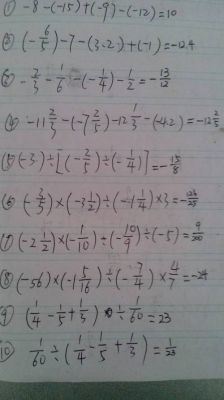 ① -8-(-15)+(-9)-(-12)=10
② (-6/5)-7-(3.2)+(-1)=-12.4
③ -2/3-1/6-(-1/4)-1/2=-13/12
④ -11 2/3-(-7 2/5)-12 1/3-(-4.2)=-12 2/5
⑤ (-3)÷[(-2/5)÷(-1/4)]=-15/8
(-3 1/2)÷(-1 1/4)×3=
⑦ (-2 1/2)×(-1/10)÷(-10/9)÷(-5)=9/200
⑧ (-56)×(-1 5/16)÷(-7/4)×4/7=-24
⑨ (1/4-1/5+1/3)÷1/60=23
⑩ 1/60÷(1/4-1/5+1/3)=1/23